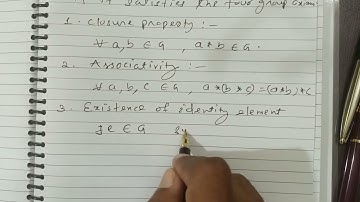 it satisfies the four group
1. closure property :-
∀ a, b ∈ G , a*b ∈ G.
2. Associativity :-
∀ a, b, c ∈ G , a*(b*c)=(a*b)*c
3. Existence of identity element
∃ e ∈ G